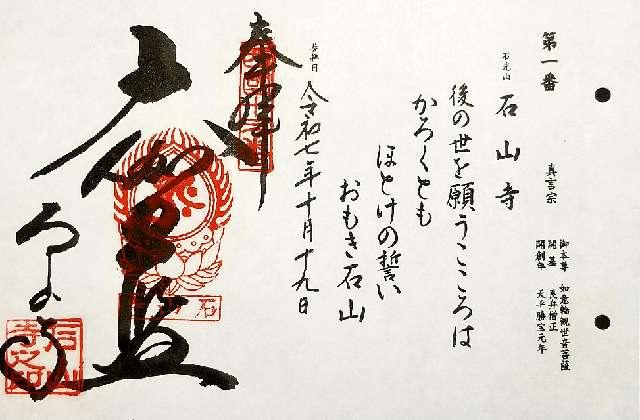 第一番
真言宗
御本尊 如意輪観世音菩薩
開基 良弁僧正
開創年 天平勝宝元年
石光山
石山寺
後の世を願うこころは
かろくとも
ほとけの誓い
おもき石山
参拝日
令和七年十月十九日
奉拝
石山寺
石山
寺之印